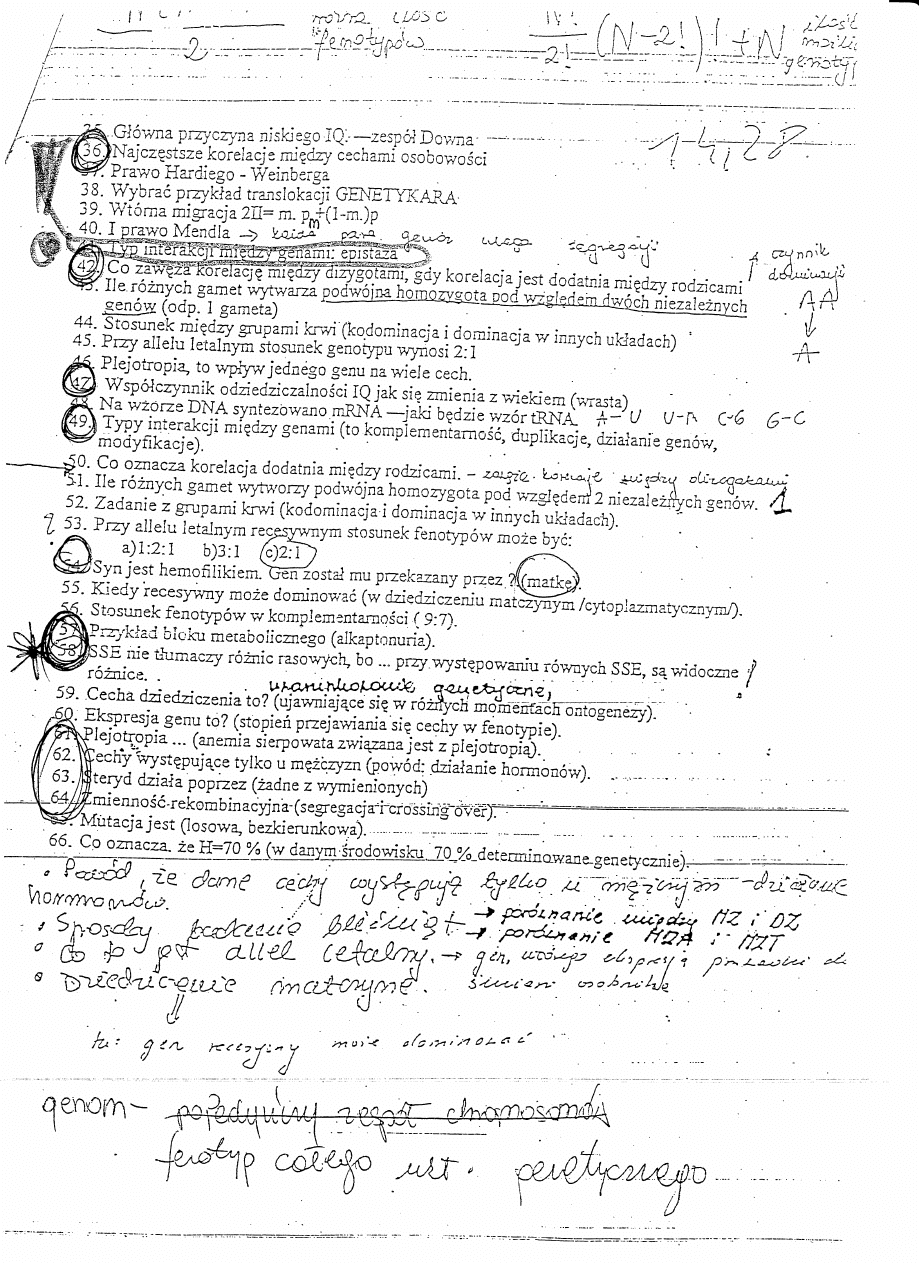 2
różna ilość
fenotypów
N!
2! (N-2!)! + N
ilość
genotyp
35. Główna przyczyna niskiego IQ. —zespół Downa
14,28
36. Najczęstsze korelacje między cechami osobowości
37. Prawo Hardiego - Weinberga
38. Wybrać przykład translokacji GENETYKARA
39. Wtórna migracja 2II= m. pm+(1-m.)p
40. I prawo Mendla → każda para genów ulega segregacji
41. Typ interakcji między genami: epistaza
czynnik
dominacji
42. Co zawęża korelację między dizygotami, gdy korelacja jest dodatnia między rodzicami
43. Ile różnych gamet wytwarza podwójna homozygota pod względem dwóch niezależnych
genów (odp. 1 gameta)
AA
↓
A
44. Stosunek między grupami krwi (kodominacja i dominacja w innych układach)
45. Przy allelu letalnym stosunek genotypu wynosi 2:1
46. Plejotropia, to wpływ jednego genu na wiele cech.
47. Współczynnik odziedziczalności IQ jak się zmienia z wiekiem (wrasta)
48. Na wzorze DNA syntezowano mRNA —jaki będzie wzór tRNA A-U U-A C-G G-C
49. Typy interakcji między genami (to komplementarność, duplikacje, działanie genów,
modyfikacje).
50. Co oznacza korelacja dodatnia między rodzicami. - między dizygotami
51. Ile różnych gamet wytworzy podwójna homozygota pod względem 2 niezależnych genów. 1
52. Zadanie z grupami krwi (kodominacja i dominacja w innych układach).
? 53. Przy allelu letalnym recesywnym stosunek fenotypów może być:
a)1:2:1 b)3:1 c)2:1
54. Syn jest hemofilikiem. Gen został mu przekazany przez ? (matkę).
55. Kiedy recesywny może dominować (w dziedziczeniu matczynym /cytoplazmatycznym/).
56. Stosunek fenotypów w komplementarności ( 9:7).
57. Przykład bloku metabolicznego (alkaptonuria).
58. SSE nie tłumaczy różnic rasowych, bo ... przy występowaniu równych SSE, są widoczne
różnice. . uwarunkowanie genetyczne,
59. Cecha dziedziczenia to? (ujawniające się w różnych momentach ontogenezy).
60. Ekspresja genu to? (stopień przejawiania się cechy w fenotypie).
61. Plejotropia ... (anemia sierpowata związana jest z plejotropią).
62. Cechy występujące tylko u mężczyzn (powód: działanie hormonów).
63. Steryd działa poprzez (żadne z wymienionych)
64. Zmienność rekombinacyjna (segregacja i crossing over).
65. Mutacja jest (losowa, bezkierunkowa).
66. Co oznacza, że H=70 % (w danym środowisku 70 % determinowane genetycznie).
• Powód, że dane cechy występują tylko u mężczyzn - działanie
hormonów.
• Sposoby badania bliźniąt → porównanie między MZ i DZ
→ porównanie MZA i MZT
• Co to jest allel letalny. → gen, którego ekspresja prowadzi do
śmierci osobnika
• Dziedziczenie matczyne.
⇓
tu: gen recesywny może dominować
genom - pojedynczy zespół chromosomów
fenotyp całego ukł. genetycznego